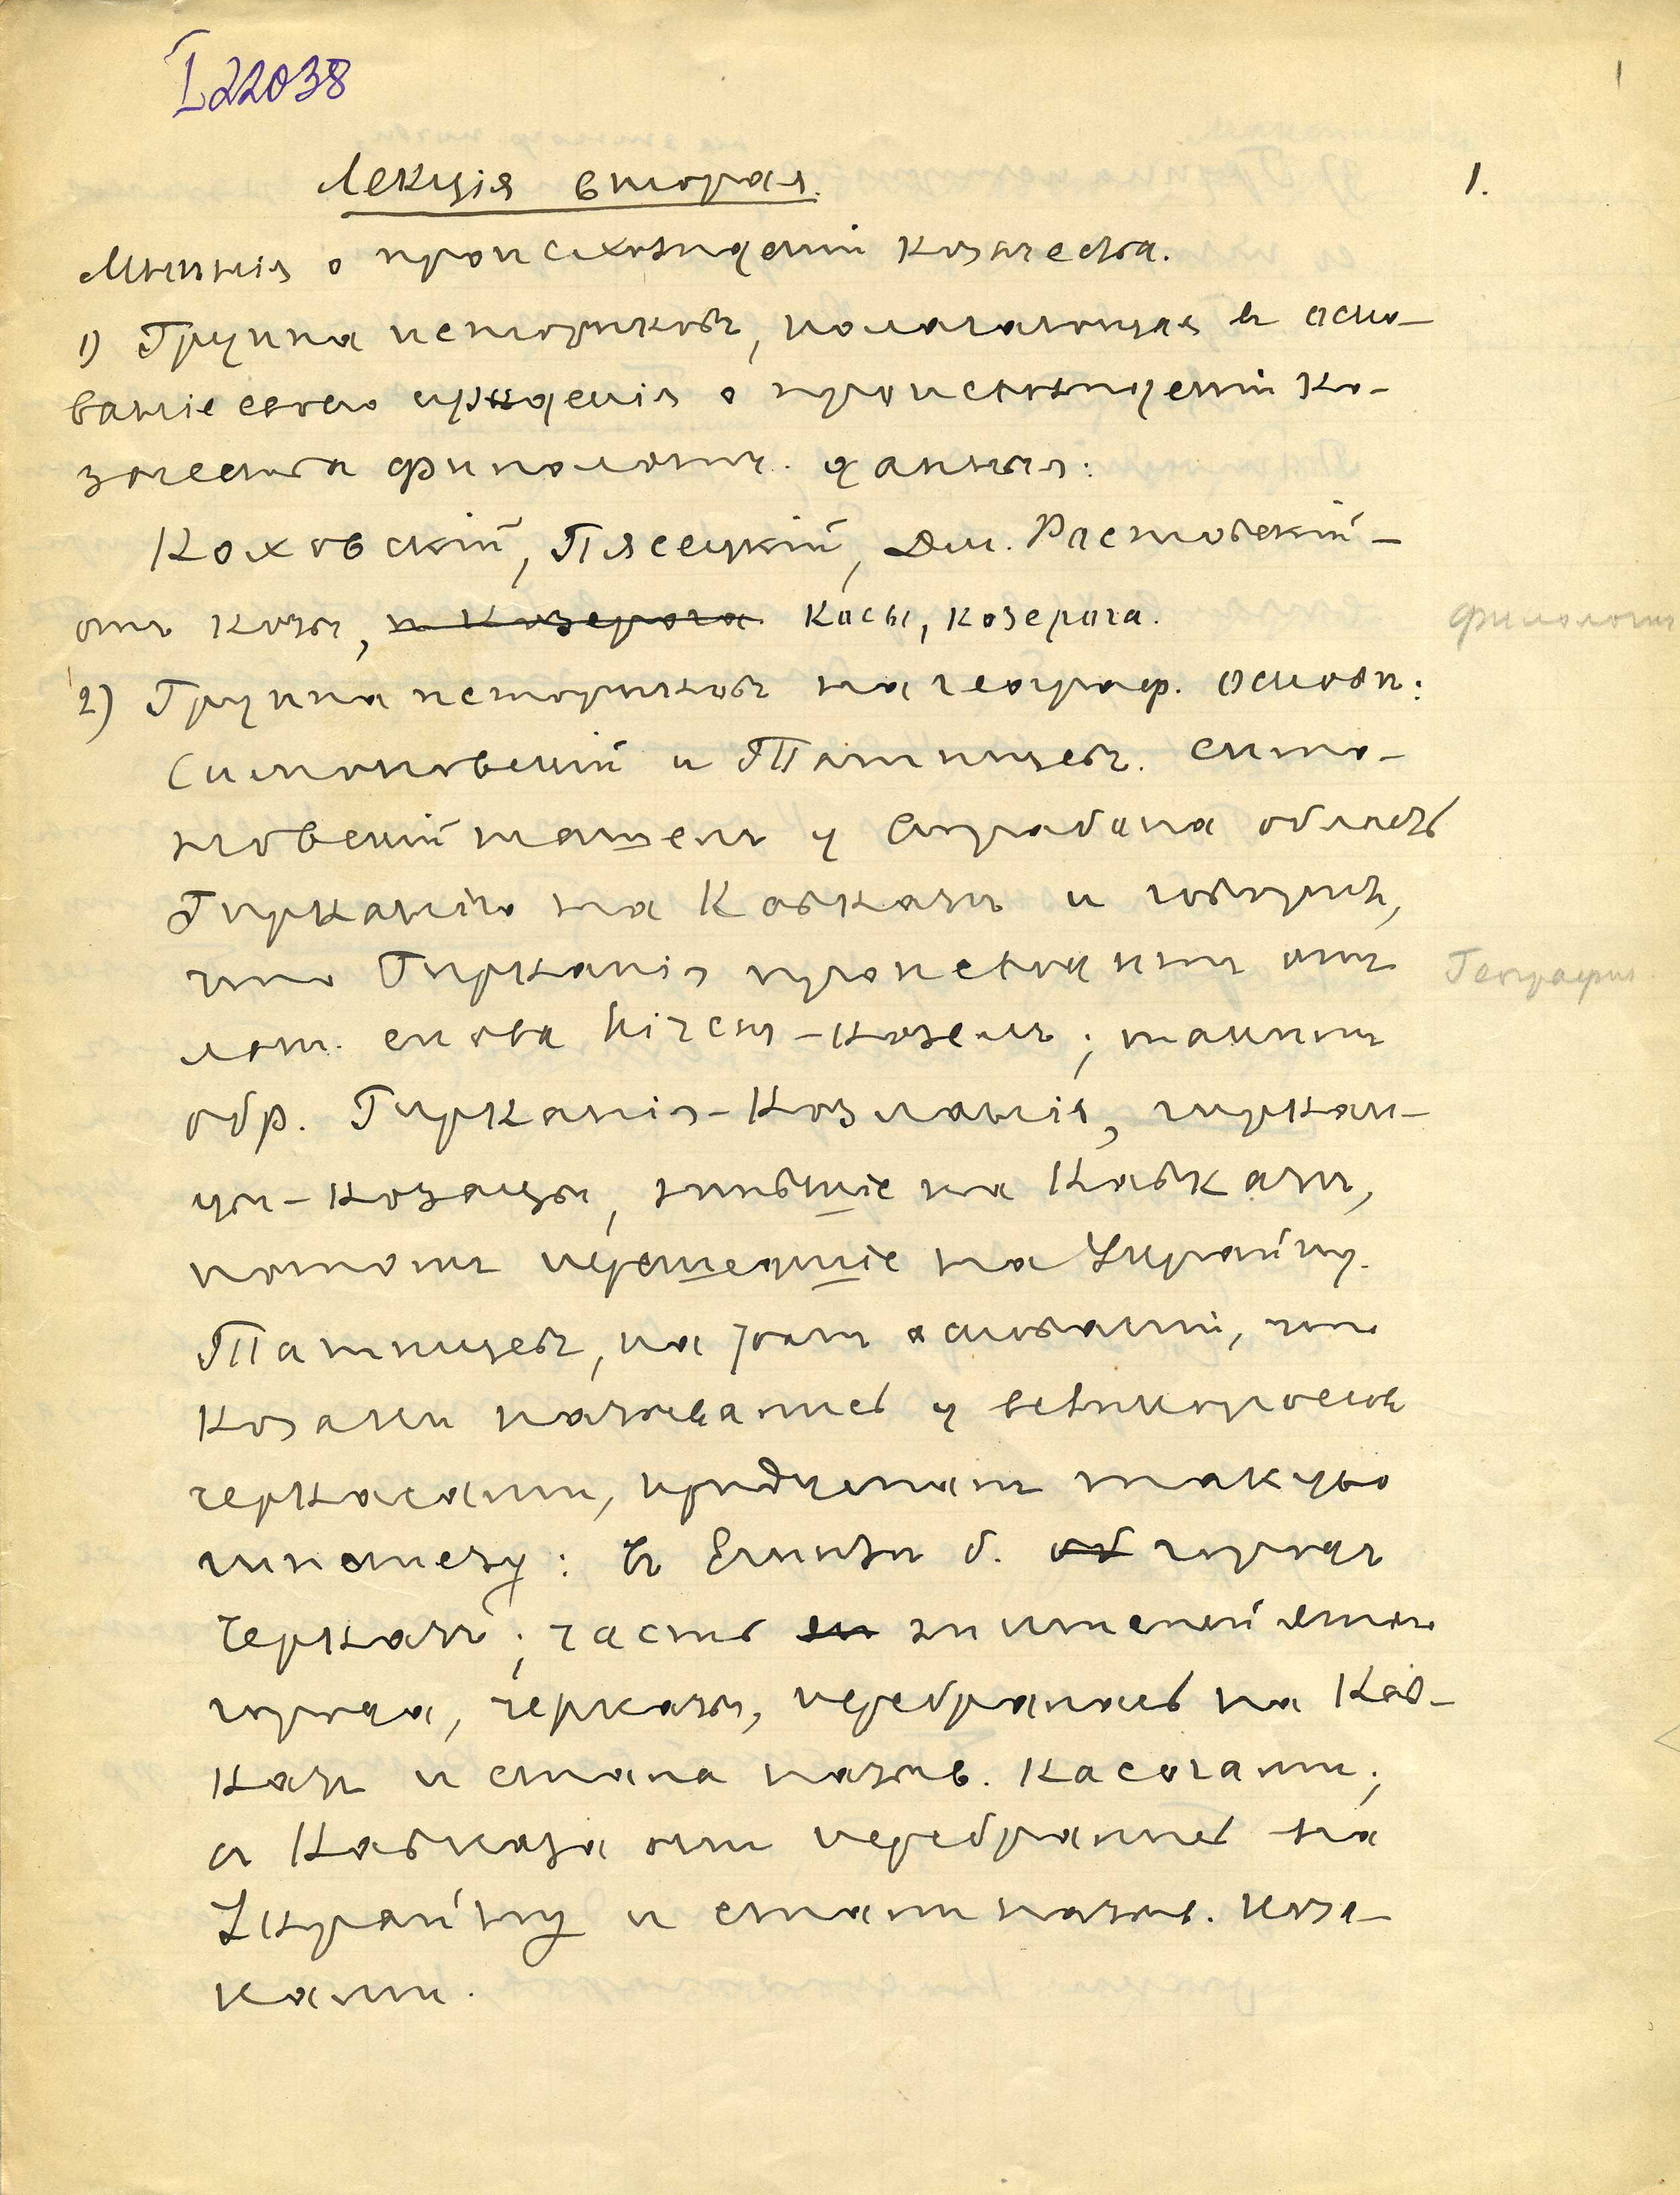 I 22038
1
Лекція вторая.
1.
Мнѣнія о происхожденіи козачества.
1) Группа историковъ, полагающая въ осно-
ваніе своего сужденія о происхожденіи ко-
зачества филологич. данныя:
Коховскій, Пясецкій, Дм. Ростовскій –
отъ козы, и козерога косы, козерога.
филологич
2) Группа историковъ на географ. основѣ:
Симоновскій и Татищевъ. Симо-
новскій нашелъ у Страбона область
Гирканію на Кавказѣ и говоритъ,
что Гирканія происходитъ отъ
Географич
лат. слова hircus – козелъ; такимъ
обр. Гирканія – Козланія, гиркан-
цы – козацы, жившіе на Кавказѣ,
потомъ перешедшіе на Украйну.
Татищевъ, на томъ основаніи, что
козаки назывались у великороссовъ
черкасами, придумалъ такую
гипотезу: въ Египтѣ б. городъ
Черказъ; часть жителей этого
города, черказы, перебралась на Кав-
казъ и стала назыв. касогами;
съ Кавказа они перебрались на
Украйну и стали назыв. коза-
ками.